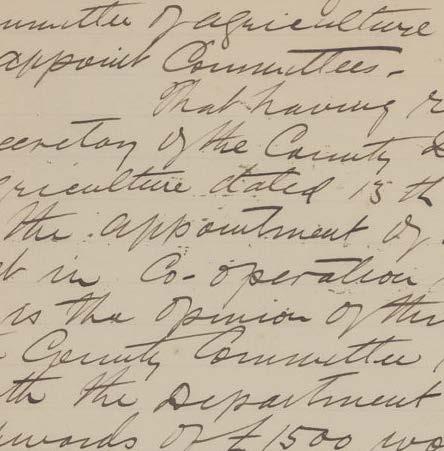 mmittee of agriculture
appoint Committees.
That having r
ecretary of the County
griculture dated 15th
the appointment of
in Co-operation
is the opinion of this
County Committee
th the Department
wards of £1500 wo